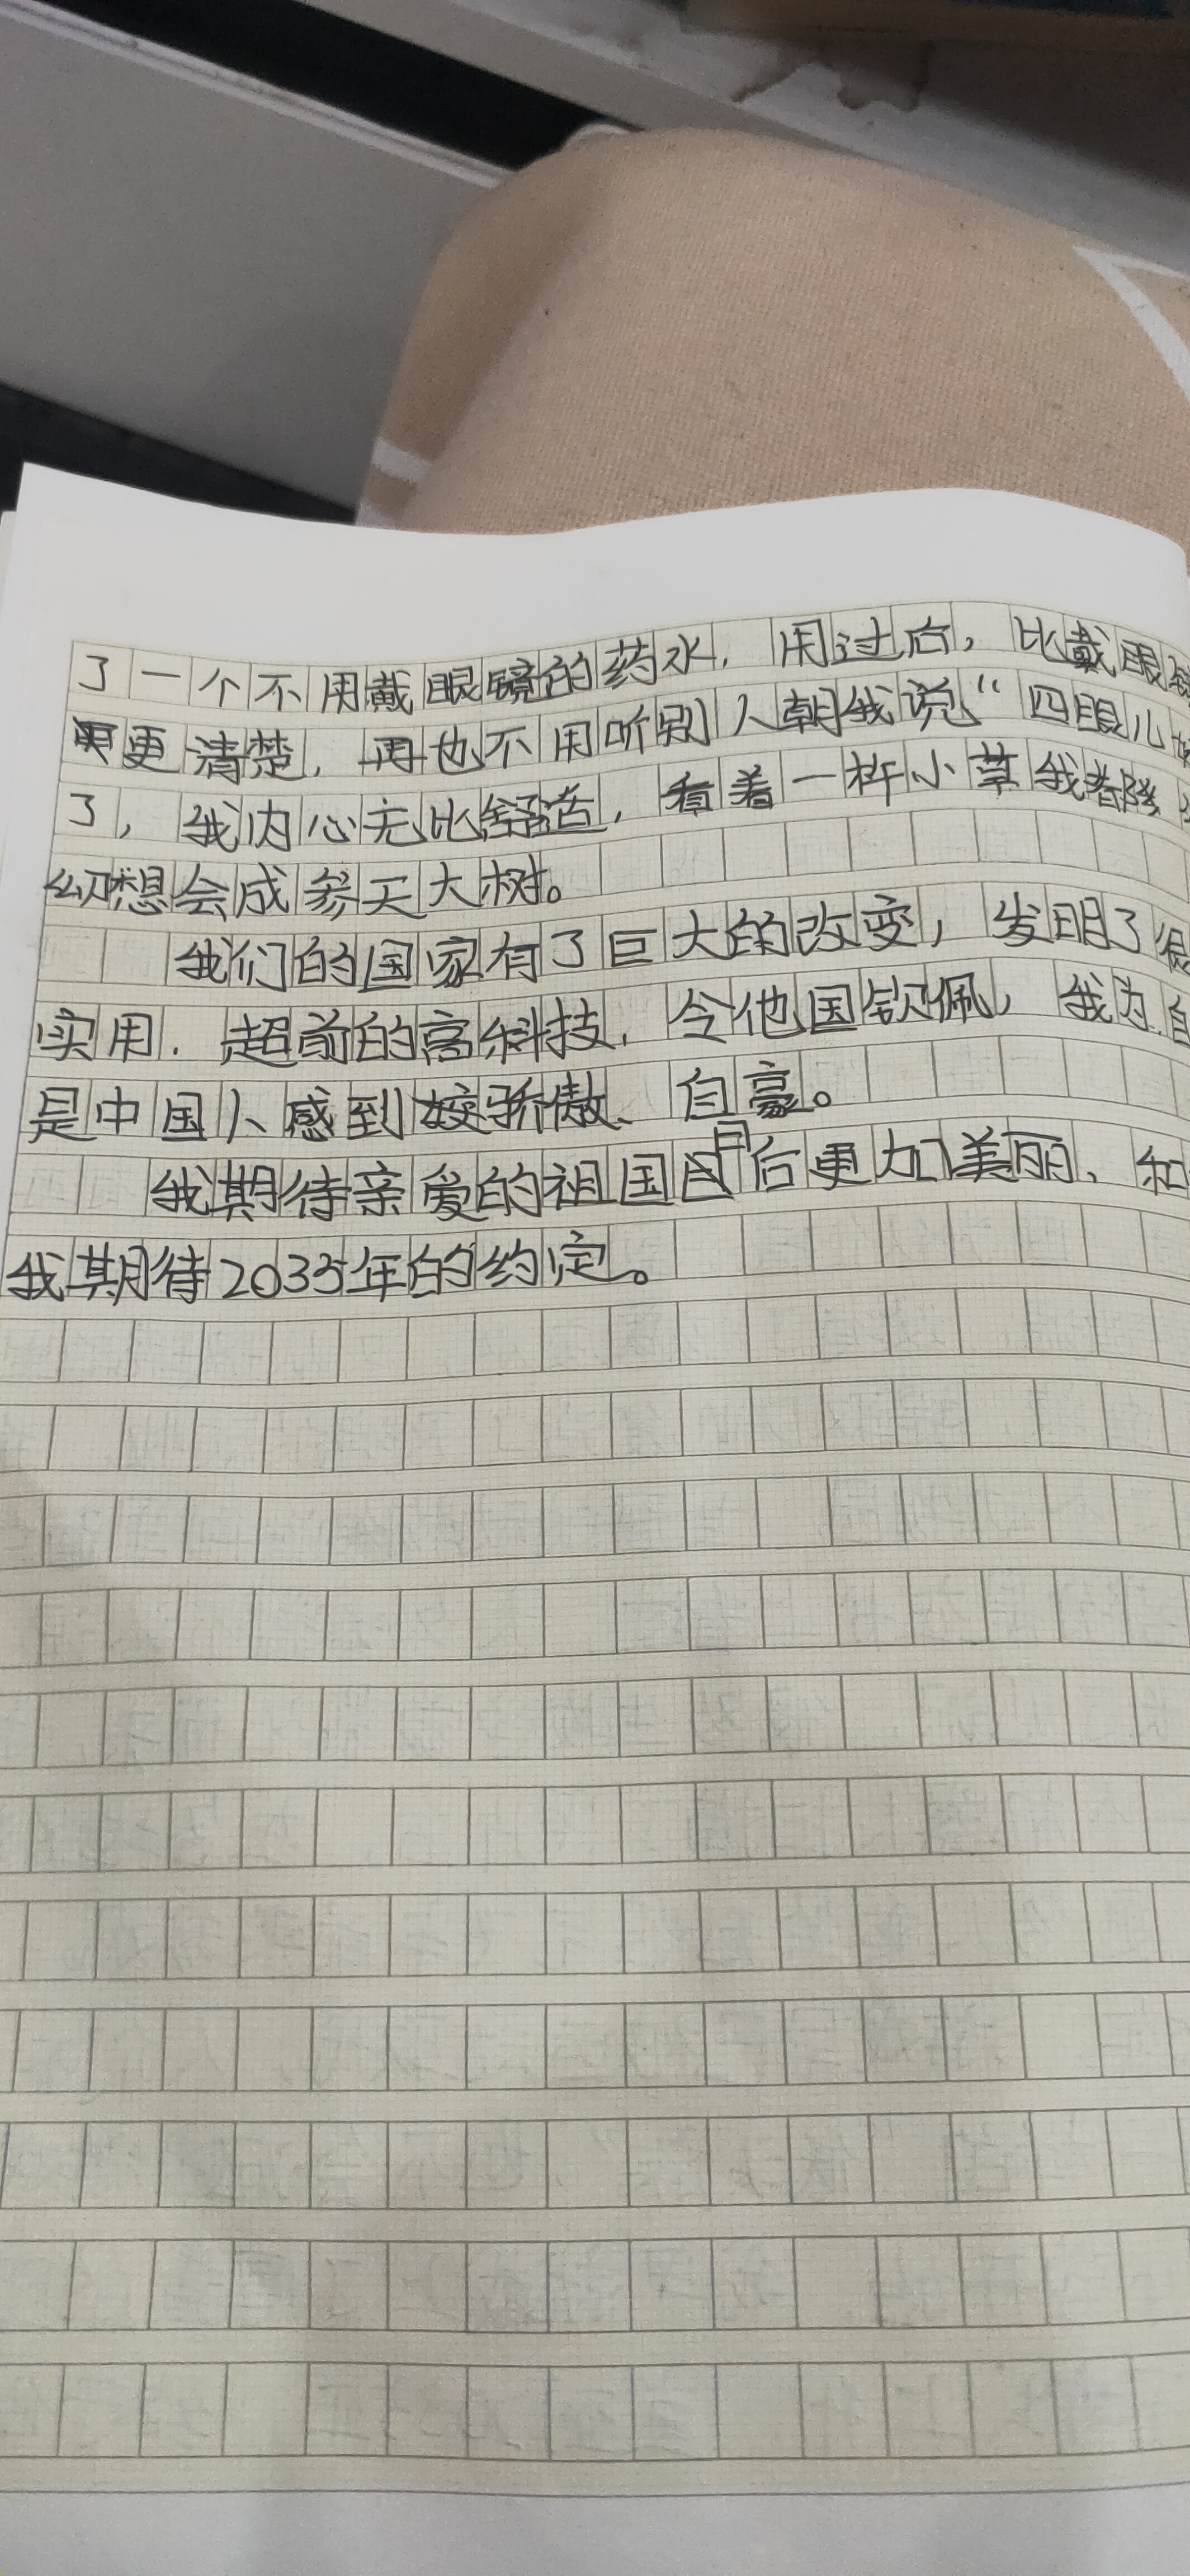 了一个不用戴眼镜的药水，用过后，比戴眼镜
更清楚，再也不用听别人朝我说“四眼儿
了，我内心无比舒适，看着一株小草我都
幻想会成参天大树。
我们的国家有了巨大的改变，发明了很
实用、超前的高科技，令他国钦佩，我为自
是中国人感到骄傲、自豪。
我期待亲爱的祖国日后更加美丽、和
我期待2035年的约定。